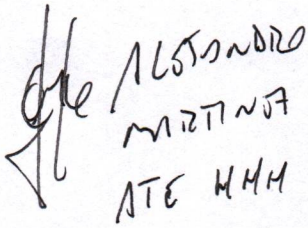 ALEJANDRO
MARTINA
ATE MMM